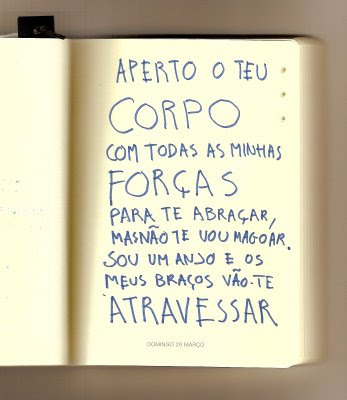 APERTO O TEU
CORPO
COM TODAS AS MINHAS
FORÇAS
PARA TE ABRAÇAR,
MAS NÃO TE VOU MAGOAR.
SOU UM ANJO E OS
MEUS BRAÇOS VÃO-TE
ATRAVESSAR
DOMINGO 29 MARÇO